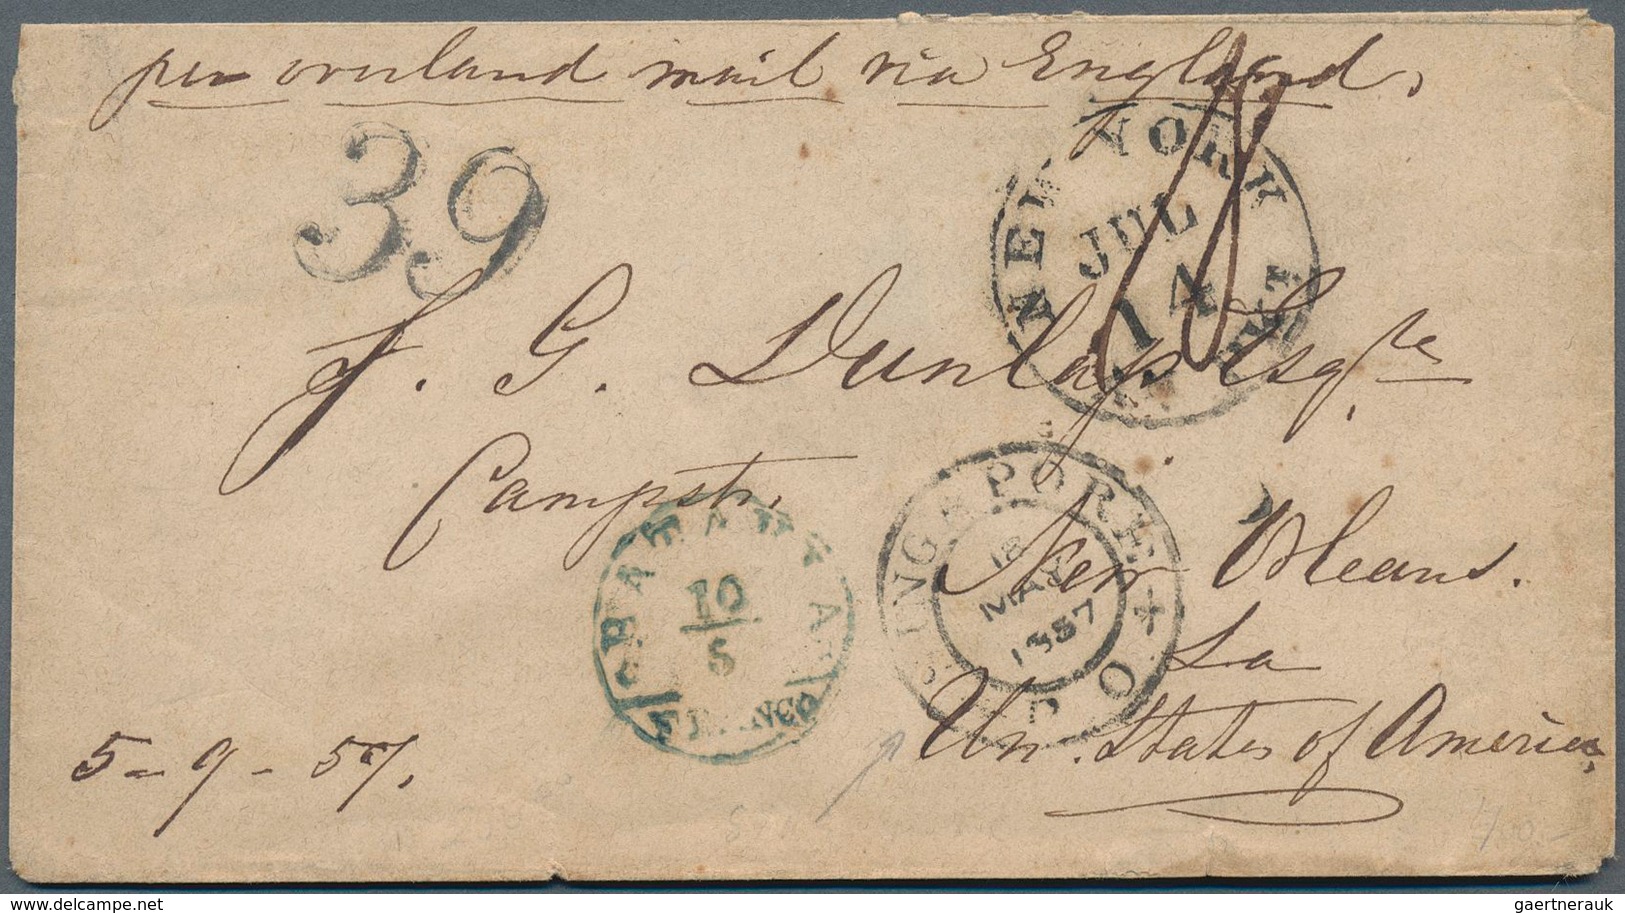 per overland mail via England,
39
NEW YORK
JUL
14
PKT
J. G. Dunlap Esqre
Campstr,
New Orleans.
La
Un. States of America,
BATAVIA
10/5
FRANCO
SINGAPORE P.O
18
MAY
1857
5-9-57.
delcampe.net
gaertnerauk